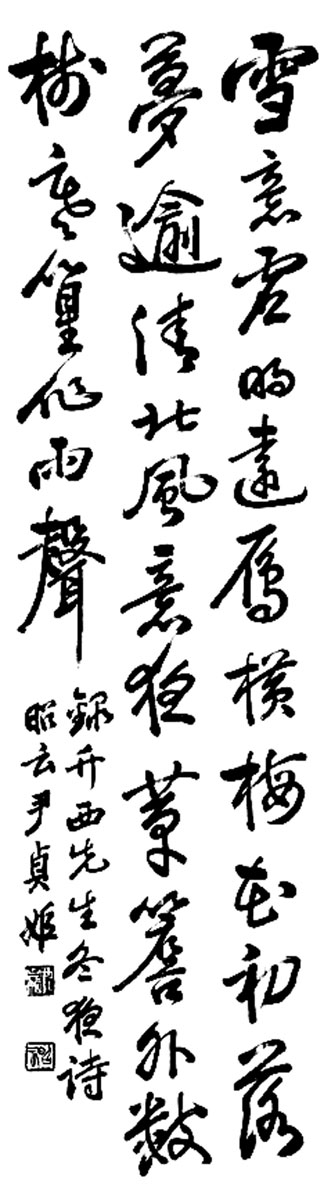 雪意虛明遠雁橫梅花初落
夢逾清北風意夜茅簷外數
樹寒篁作雨聲
錄升西先生冬夜詩
昭云尹貞姬